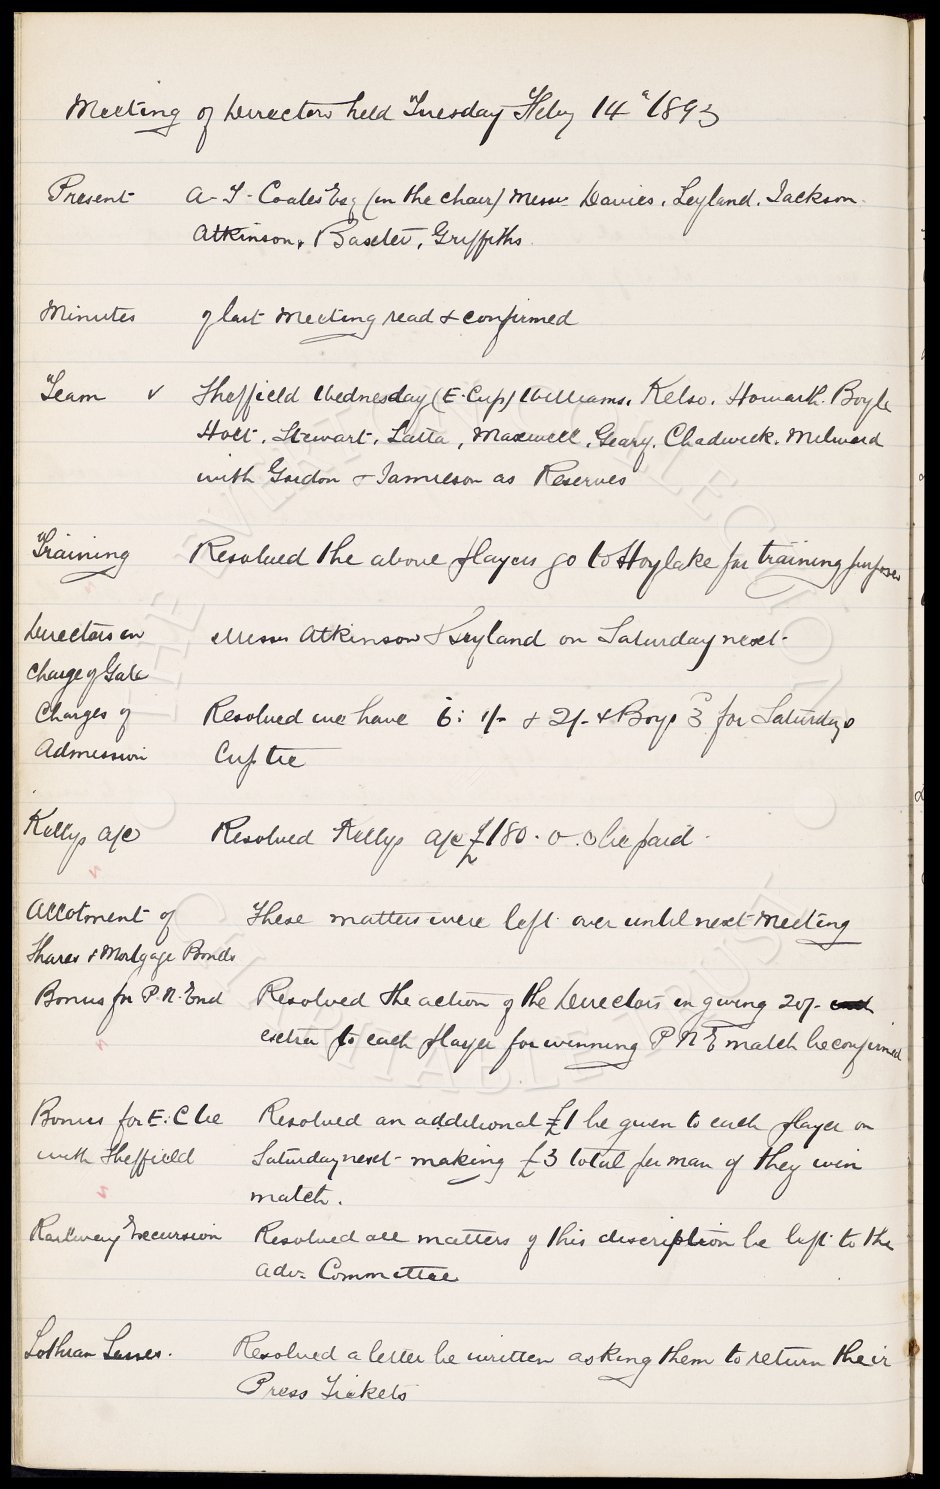 Meeting of Directors held Tuesday Feby 14th 1893
Present A. T. Coates Esq (in the chair) Messrs Davies, Leyland, Jackson
Atkinson, Baxter, Griffiths
Minutes of last Meeting read & confirmed
Team v Sheffield Wednesday (E. Cup) Williams, Kelso, Howarth, Boyle
Holt, Stewart, Latta, Maxwell, Geary, Chadwick, Milward
with Gordon & Jamieson as Reserves
Training Resolved the above players go to Hoylake for training purposes
Directors in Messrs Atkinson & Leyland on Saturday next
charge of Gate
Charges of Resolved we have 6: 1/- & 2/- & Boys 3 for Saturdays
Admission Cup tie
Kellys a/c Resolved Kellys a/c £180. 0. 0 be paid
Allotment of These matters were left over until next Meeting
Shares & Mortgage Bonds
Bonus for P. N. End Resolved the action of the Directors in giving 20/-
extra to each player for winning P N E match be confirmed
Bonus for E. C tie Resolved an additional £1 be given to each player on
with Sheffield Saturday next making £3 total per man if they win
match.
Railway Excursion Resolved all matters of this description be left to the
adv. Committee
Lothian Resolved a letter be written asking them to return their
Press Tickets
THE EVERTON COLLECTION
CHARITABLE TRUST